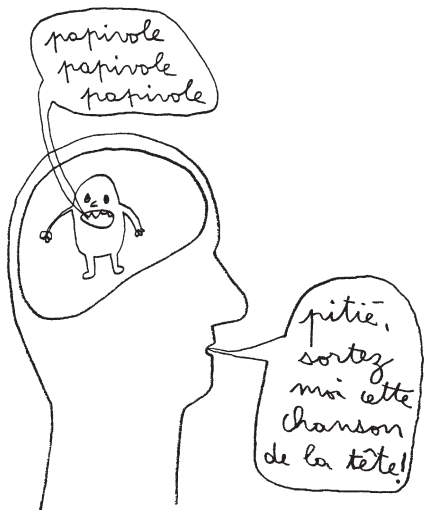 papivole
papivole
papivole
pitié,
sortez
moi cette
chanson
de la tête!